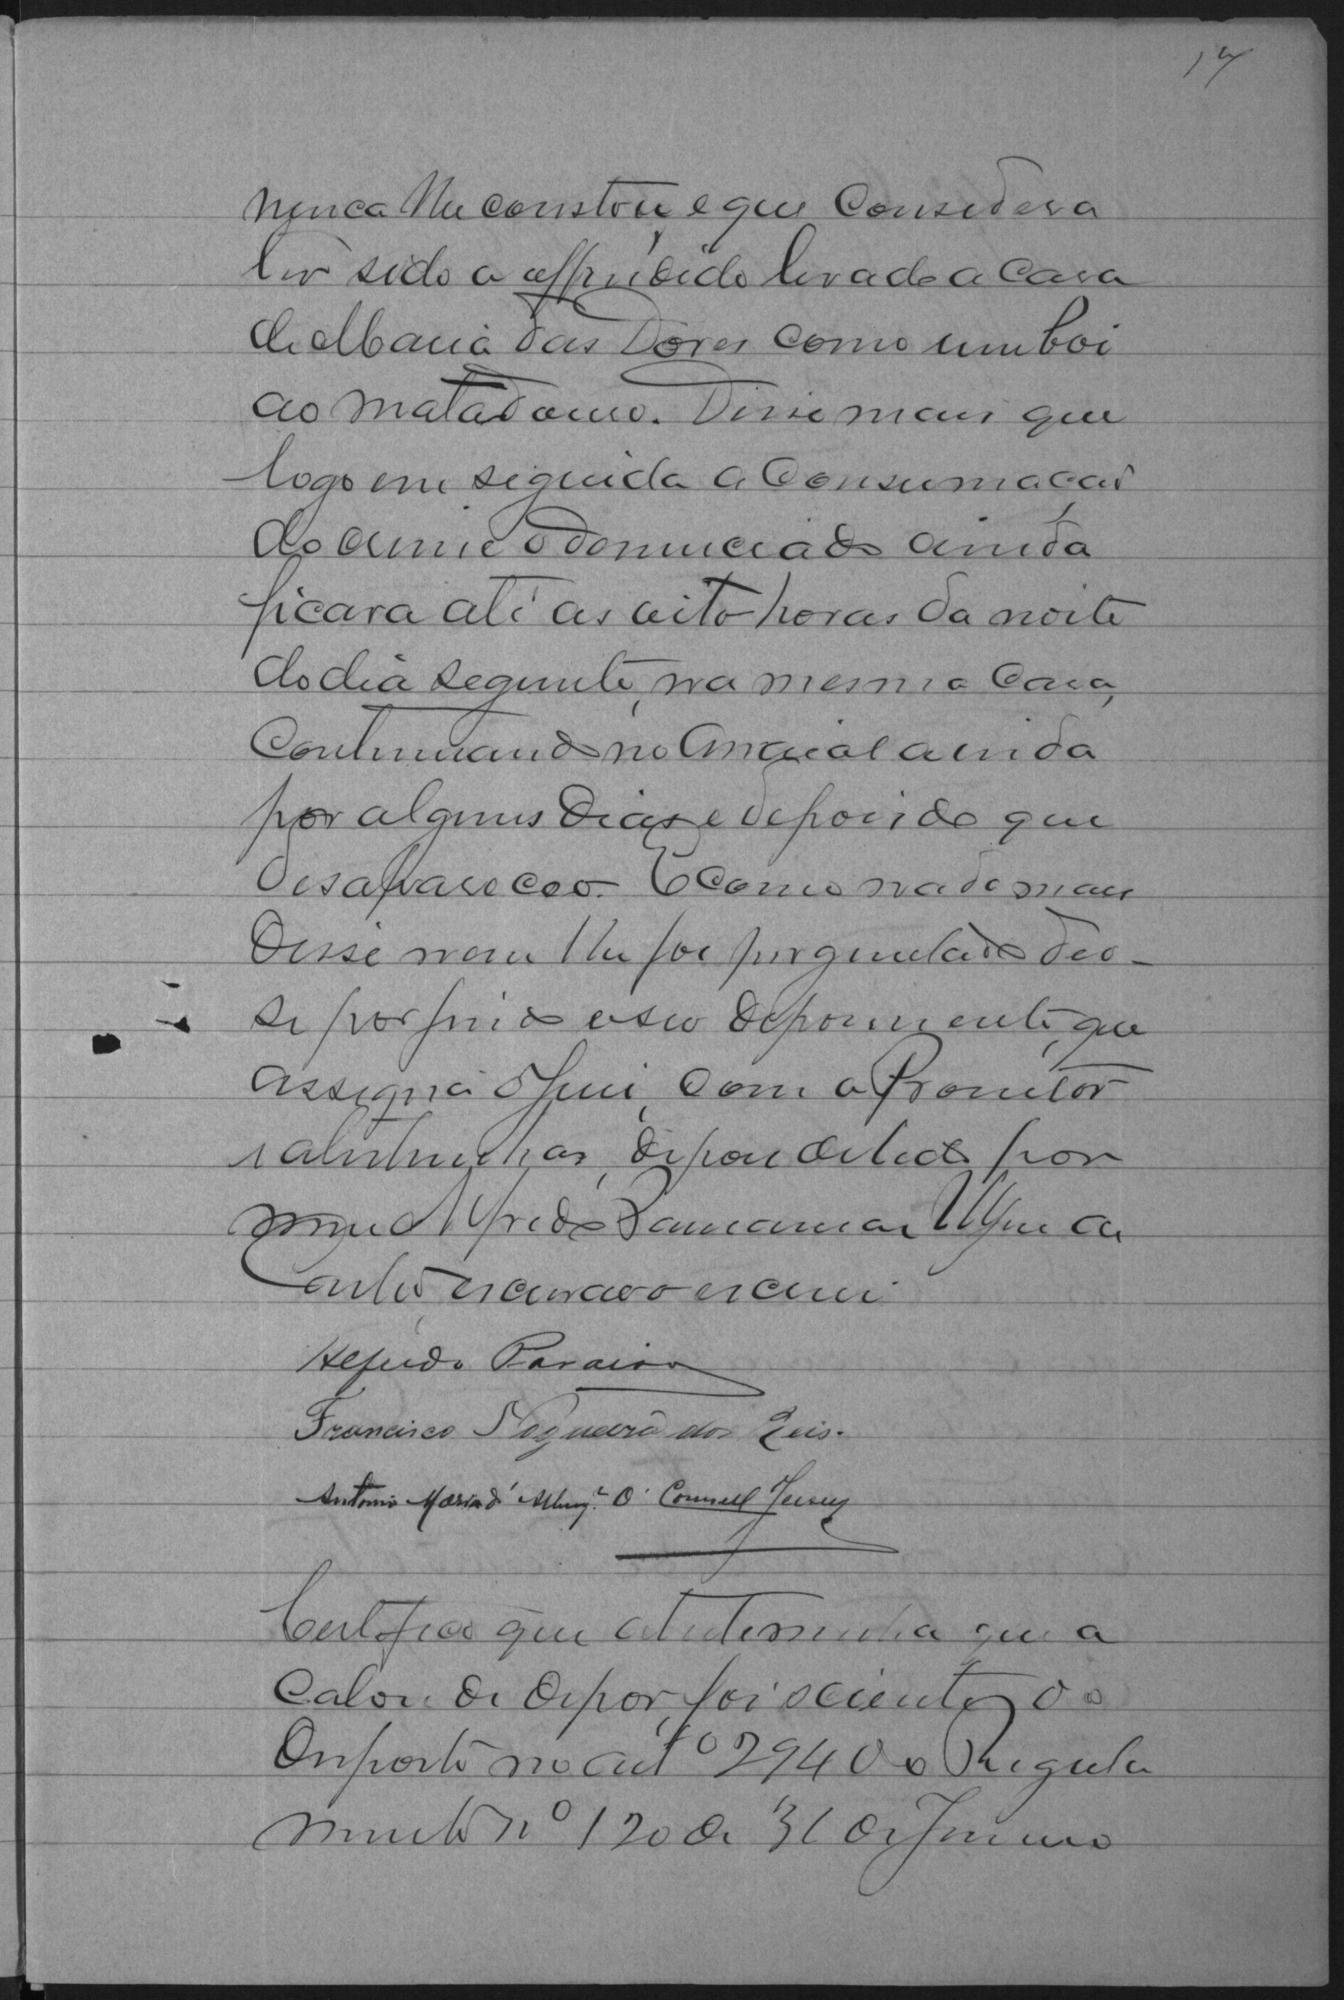 17
nunca lhe constou, e que considera
ter sido o offendido levado a casa
de Maria das Dores como um boi
ao matadouro. Disse mais que
logo em seguida a consumação
do crime o denunciado ainda
ficara até as oito horas da noite
do dia seguinte, na mesma casa,
continuando no Arraial ainda
por alguns dias e depois do que
desappareceo. E como nada mais
disse nem lhe foi perguntado deo-
se por findo o seo depoimento, que
assigna o Juiz, com o Promotor
e a testemunha, depois de lido por
mim Alfredo
Couto escrivão o escrevi
Alfredo Paraiso
Francisco Nogueira dos Reis.
Antonio Maria d'Albuq.e O'Connell Jersey
Certifico que a testemunha que a
cabou de depor, foi sciente do
disposto no art.o 294 do Regula
mento n.o 120 de 31 de Janeiro